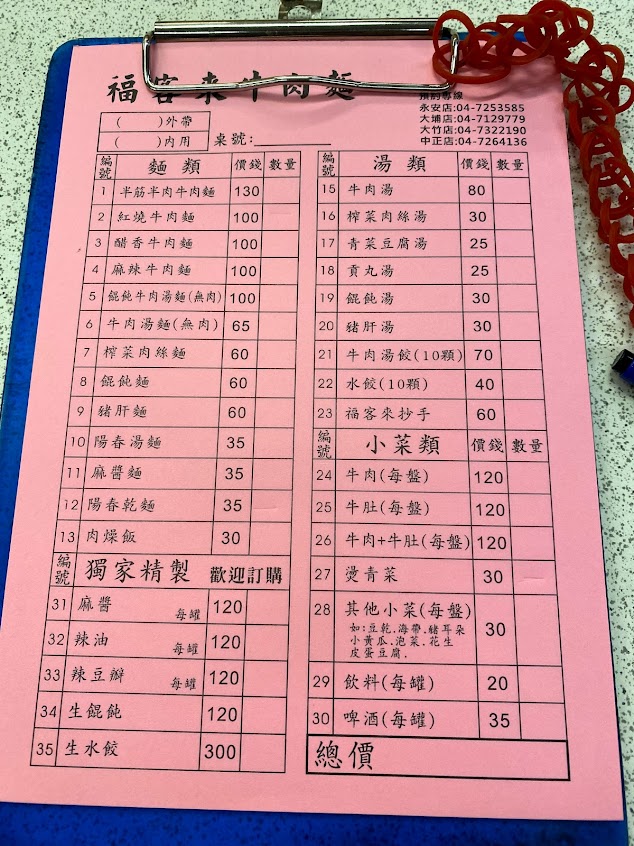 福客來牛肉麵
預訂專線
永安店:04-7253585
大埔店:04-7129779
大竹店:04-7322190
中正店:04-7264136
( )外帶
( )內用
桌號:
編號 麵類 價錢 數量
1 半筋半肉牛肉麵 130
2 紅燒牛肉麵 100
3 醋香牛肉麵 100
4 麻辣牛肉麵 100
5 餛飩牛肉湯麵(無肉) 100
6 牛肉湯麵(無肉) 65
7 榨菜肉絲麵 60
8 餛飩麵 60
9 豬肝麵 60
10 陽春湯麵 35
11 麻醬麵 35
12 陽春乾麵 35
13 肉燥飯 30
編號 獨家精製 歡迎訂購
31 麻醬 每罐 120
32 辣油 每罐 120
33 辣豆瓣 每罐 120
34 生餛飩 120
35 生水餃 300
編號 湯類 價錢 數量
15 牛肉湯 80
16 榨菜肉絲湯 30
17 青菜豆腐湯 25
18 貢丸湯 25
19 餛飩湯 30
20 豬肝湯 30
21 牛肉湯餃(10顆) 70
22 水餃(10顆) 40
23 福客來抄手 60
編號 小菜類 價錢 數量
24 牛肉(每盤) 120
25 牛肚(每盤) 120
26 牛肉+牛肚(每盤) 120
27 燙青菜 30
28 其他小菜(每盤) 30
如:豆乾.海帶.豬耳朵
小黃瓜.泡菜.花生
皮蛋豆腐.
29 飲料(每罐) 20
30 啤酒(每罐) 35
總價